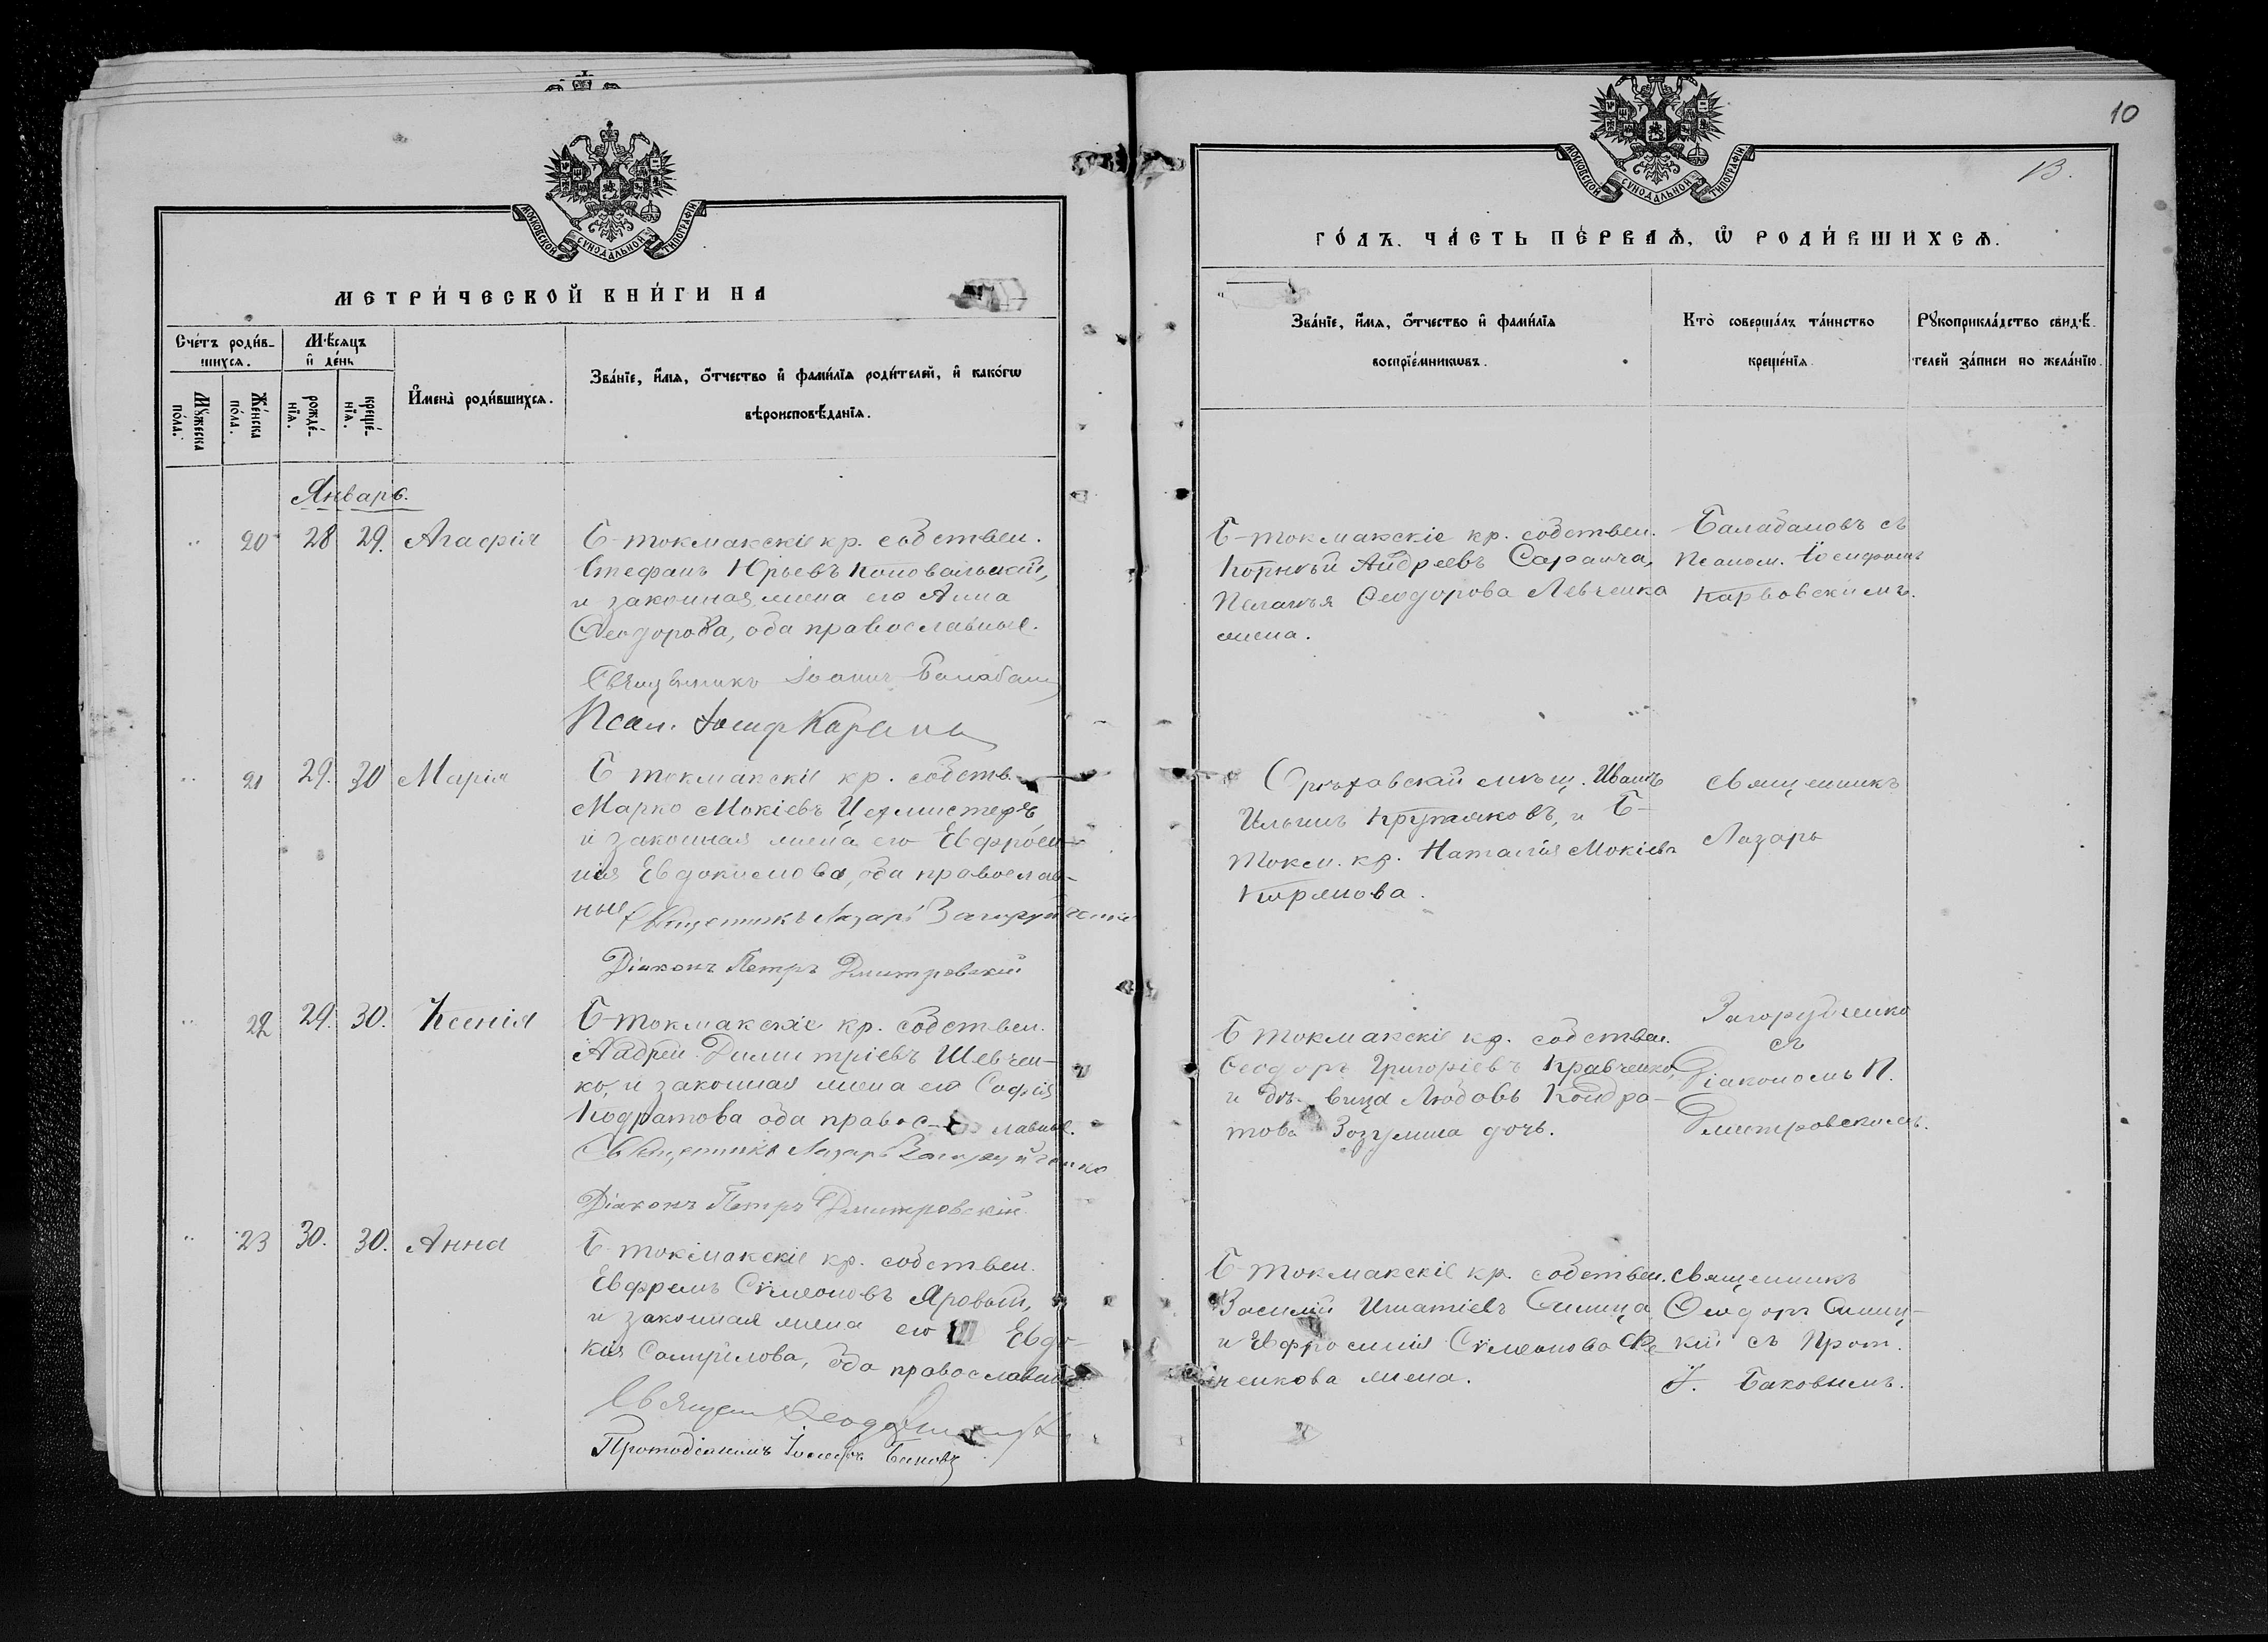 МОСКОВСКОЙ СѴНОДАЛЬНОЙ ТИПОГРАФІИ
МЕТРИ́ЧЕСКОЙ КНИ́ГИ НА
Сче́тъ роди́в-
шихся.
Мѣ́сяцъ
и҆ де́нь
Мꙋ́жеска
по́ла.
Же́нска
по́ла.
рожде́-
нїѧ.
креще́-
нїѧ.
И҆мена̀ роди́вшихсѧ.
Зва́нїе, и҆́мѧ, ѻ҆́тчество и҆ фами́лїѧ роди́телей, и҆ како́гѡ
вѣроисповѣ́данїѧ.
Январь.
20 28 29. Агафія
Б-токмакскіе кр. собствен.
Стефанъ Юрьевъ Коповальскій,
и законная жена его Анна
Ѳеодорова, оба православные.
Священникъ Іоаннъ Балабан
Псал. Іосиф Кар
21 29. 30 Марія
Б токмакскіе кр. собств.
Марко Мокіевъ
и законная жена его Евфроси-
нія Евдокимова, оба православ-
ные
Священникъ Лазарь Загоруйченко
Діаконъ Петръ Дмитровскій
22 29. 30. Ксенія
Б-токмакскіе кр. собствен.
Андрей Димитріевъ Шевчен-
ко, и законная жена его Софія
Кодратова оба правос- лавные.
Священникъ Лазарь Загоруйченко
Діаконъ Петръ Дмитровскій
23 30. 30. Анна
Б-токмакскіе кр. собствен.
Евфремъ Сѵмеоновъ Яровый,
и законная жена его Евдо-
кія Самуилова, оба православные
Священ Ѳеодоръ
Протодіаконъ Іосифъ Баковъ
10
13.
МОСКОВСКОЙ СѴНОДАЛЬНОЙ ТИПОГРАФІИ
ГО́ДЪ. ЧА́СТЬ ПЕ́РВАѦ, Ѡ҆ РОДИ́ВШИХСѦ.
Зва́нїе, и҆́мѧ, ѻ҆́тчество и҆ фами́лїѧ
воспрїе́мникѡвъ.
Кто̀ соверша́лъ та́инство
креще́нїѧ.
Рꙋкоприкла́дство свидѣ́-
телей за́писи по жела́нїю.
Б-токмакскіе кр. собствен.
Корнѣй Андреевъ Саранча,
Пелагія Ѳеодорова Левченка
жена.
Балабановъ съ
Псалом. Іосифомъ
Карвовскимъ.
Орѣховскій мѣщ. Иванъ
Ильинъ Крутяковъ, и Б-
Токм. кр. Наталія Мокіева
Кирянова.
Священникъ
Лазарь
Б токмакскіе кр. собствен.
Ѳеодоръ Григоріевъ Кравченко,
и дѣвица Любовь Кондра-
това Зозулина дочь.
Загоруйченко
съ
Діакономъ П.
Дмитровскимъ.
Б-токмакскіе кр. собствен.
Василій Игнатіевъ Синица
и Евфросинія Сѵмеонова Фе-
ченкова жена.
Священникъ
Ѳеодоръ Синиц-
кій съ Прот.
І. Баковымъ.